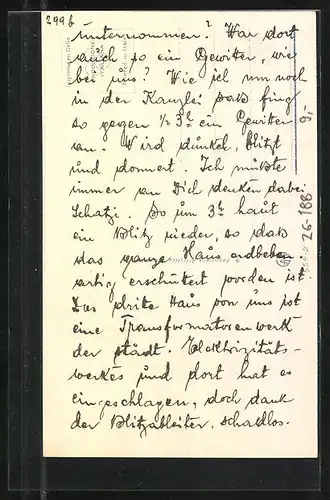 299b
unternommen? War dort
auch so ein Gewitter, wie
bei uns? Wie ich um noch
in der Kanzlei saß fing
so gegen ½ 3h ein Gewitter
an. Wird dunkel, blitzt
und donnert. Ich mußte
immer an Dich denken dabei
Schatzi. So um 3h haut
ein Blitz nieder, so daß
das ganze Haus erdbeben
artig erschütert worden ist.
Das dritte Haus von uns ist
eine Transformatorenwerk
der städt. Elecktrizitäts-
werkes und dort hat es
eingeschlagen, doch dank
der Blitzableiter, schadlos.
26-188
9,-